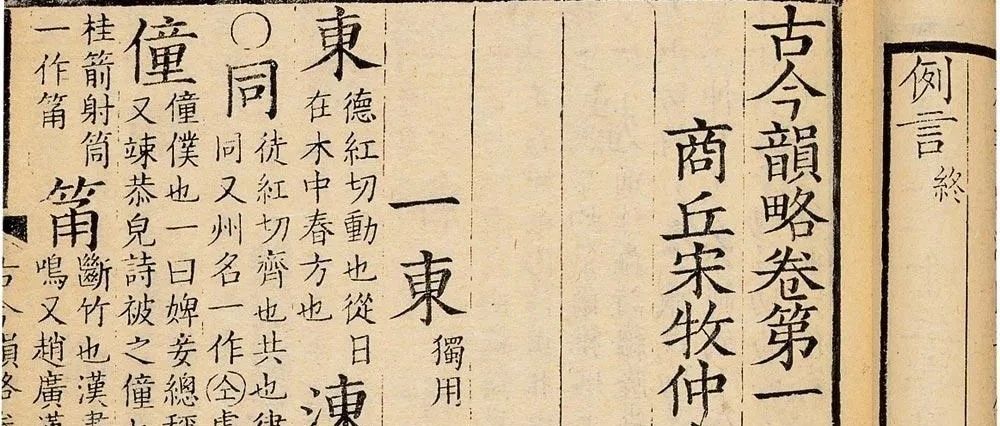 例言終
古今韻略卷第一
商丘宋牧仲
一東獨用
東德紅切動也從日
在木中春方也
涷
〇同徒紅切齊也共也律
同又州名一作仝
僮僮僕也一曰婢妾總稱
又竦恭皃詩被之僮
桂箭射筒
一作筩
筩斷竹也漢書
鳴又趙廣漢
古今韻略